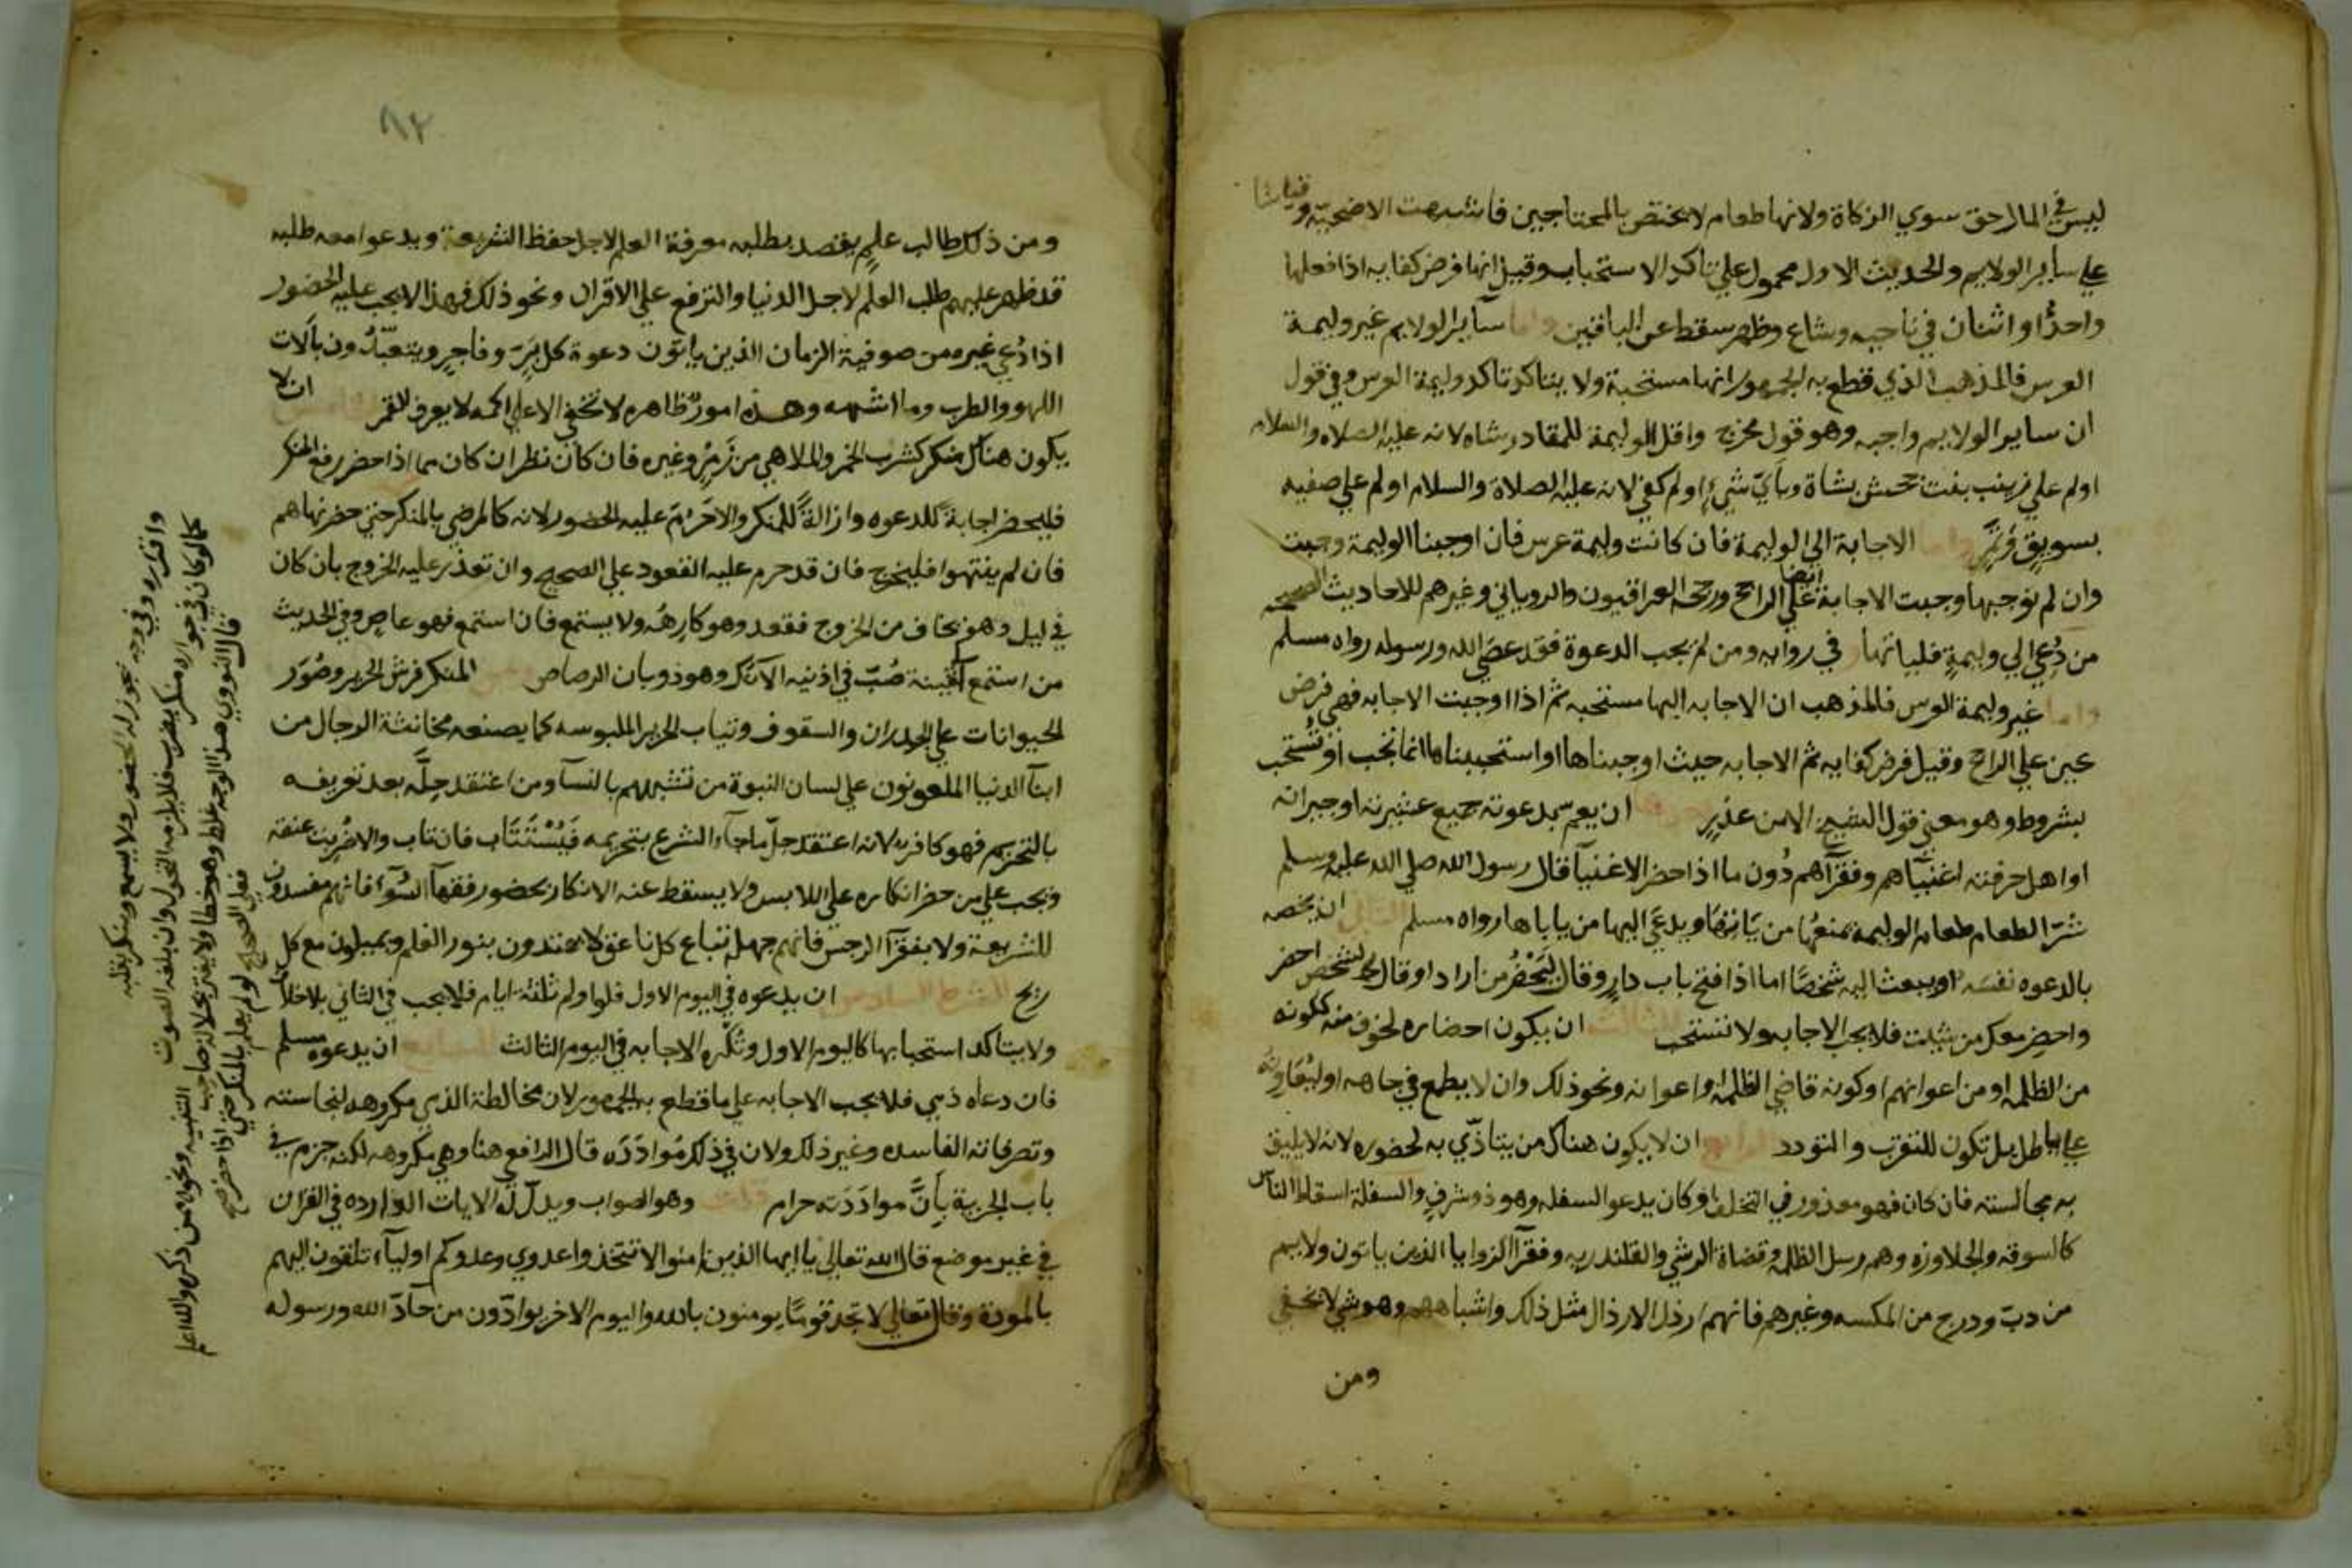 ليس في المال حق سوي الزكاة ولانها طعام لا يختص بالمحتاجين فاشبهت الاضحية وقياسا
علي ساير الولايم والحديث الاول محمول علي تاكد الاستحباب وقيل انها فرض كفايه اذا فعلها
واحدٌ او اثنان في ناحيه وشاع وظهر سقط عن الباقين واما ساير الولايم غير وليمة
العرس فالمذهب الذي قطع به الجمهور انها مستحبة ولا يتاكد تاكد وليمة العرس وفي قول
ان ساير الولايم واجبه وهو قول مخرج واقل الوليمة للقادر شاه لانه عليه الصلاه والسلام
اولم علي زينب بنت جحش بشاة وبأيّ شيءٍ اولم كفي لانه عليه الصلاة والسلام اولم علي صفيه
بسويق وتمر واما الاجابة الي الوليمة فان كانت وليمة عرس فان اوجبنا الوليمة وجبت
وان لم نوجبها وجبت الاجابة ايضا علي الراجح ورجحه العراقيون والروياني وغيرهم للاحاديث الصحيحه
من دُعي الي وليمةٍ فلياتها وفي روايه ومن لم يجب الدعوة فقد عصَي الله ورسوله رواه مسلم
واما غير وليمة العرس فالمذهب ان الاجابه اليها مستحبه ثم اذا اوجبنا الاجابه فهي فرض
عين علي الراجح وقيل فرض كفايه ثم الاجابه حيث اوجبناها او استحببناها انما تجب او تُستحب
بشروط وهو معني قول الشيخ الا من عذرٍ احدها ان يعم بدعوته جميع عشيرته او جيرانه
او اهل حرفته اغنيآهم وفقرآهم دُون ما اذا حضر الاغنيآ قال رسول الله صلي الله عليه وسلم
شرّ الطعام طعام الوليمة يمنعُها من يَاتِيهَا ويدعَي اليها من ياباها رواه مسلم الثاني ان يخصه
بالدعوه نفسَه او يبعث اليه شخصًا اما اذا فتح باب دارٍ وقال ليَحْضُر من اراد او قال لشخص احضر
واحضِر معك من شيت فلا يجب الاجابه ولا تستحب الثالث ان يكون احضاره لخوف منه لكونه
من الظلمه او من اعوانهم او كونه قاضي الظلمه او اعوانه ونحو ذلك وان لا يطمع في جاهه او ليُعَاونه
علي باطل بل تكون للتقرب والتودد الرابع ان لا يكون هناك من يتاذّي به لحضوره لانه لا يليق
به مجالسته فان كان فهو معذور في التخلف او كان يدعو السفله وهو ذو شرفٍ والسفلة اسقاط الناس
كالسوقه والجلاوزه وهم رسل الظلمه وقضاة الرشي والقلندريه وفقرآ الزوايا الذين ياتون ولايم
من دبّ ودرج من المكسه وغيرهم فانهم ارذل الارذال مثل ذلك واشباههم وهو شي لا يخفي
ومن
٨٢
ومن ذلك طالب علمٍ يقصد بطلبه معرفة العلم لاجل حفظ الشريعة ويدعوا معه طلبه
قد ظهر عليهم طلب العلم لاجل الدنيا والترفع علي الاقران ونحو ذلك فهذا لا يجب عليه الحضور
اذا دُعي غيره من صوفية الزمان الذين ياتون دعوة كل بَرٍ وفاجرٍ ويتعبّدُون بآلات
اللهو والطرب وما اشبهه وهذه امورٌ ظاهره لا تخفي الا علي اكمه لا يعرف القمر الخامس ان لا
يكون هناك منكر كشرب الخمر والملاهي من زَمرٍ وغيره فان كان نظر ان كان مما اذا حضر رفع المنكر
فليحضر اجابةً للدعوه وازالةً للمنكر والا حَرُم عليه الحضور لانه كالرضي بالمنكر حتي حضر نهاهم
فان لم ينتهوا فليخرج فان قعد حرم عليه القعود علي الصحيح وان تعذر عليه الخروج بأن كان
في ليل وهو يخاف من الخروج فقعد وهو كارهٌ ولا يستمع فان استمع فهو عاصٍ وفي الحديث
من استمع لقينة صُبّ في اذنيه الآنُك وهو ذوبان الرصاص ومن المنكر فرش الحرير وصُوَر
الحيوانات علي الجدران والسقوف وثياب الحرير الملبوسه كما يصنعه مخانثة الرجال من
ابنآ الدنيا الملعونون علي لسان النبوة من تشبههم بالنسآ ومن اعتقد حِلّه بعد تعريفه
بالتحريم فهو كافر لانه اعتقد حلّ ما جآء الشرع بتحريمه فَيُسْتَتَاب فان تاب والا ضُربت عنقه
ويجب علي من حضر انكاره علي اللابس ولا يسقط عنه الانكار بحضور فقهآ السُوء فانهم مفسدون
للشريعة ولا بفقرآ الرجس فانهم جهلة اتباع كل ناعق لا يهتدون بنور العلم ويميلون مع كل
ريح الشرط السادس ان يدعوه في اليوم الاول فلو اولم ثلثة ايام فلا يجب في الثاني بلا خلاف
ولا يتاكد استحبابها كاليوم الاول وتُكره الاجابه في اليوم الثالث السابع ان يدعوه مسلم
فان دعاه ذمي فلا يجب الاجابه علي ما قطع به الجمهور لان مخالطة الذمي مكروهه لنجاسته
وتصرفاته الفاسده وغير ذلك ولان في ذلك مُوادَدَه قال الرافعي هنا وهي مكروهه لكنه جزم في
باب الجزية بأنَّ موادَدَته حرام قلت وهو الصواب ويدل له الايات الوارده في القران
في غير موضع قال الله تعالي يا ايها الذين امنوا لا تتخذوا عدوي وعدوكم اوليآء تلقون اليهم
بالمودة وقال تعالي لا تجد قومًا يومنون بالله واليوم الاخر يوادّون من حآدّ الله ورسوله
واقتدره وفي وجه يجوز له الحضور ولا يسمع وينكر بقلبه
كما لو كان في جواره منكر يضرب فلا يلزمه التحول وان بلغه الصوت
قال النووي هذا الوجه غلط وهو خطا ولا يغتر بجلالة صاحب التنبيه ونحوه ممن ذكره والله اعلم
فعلي الصحيح لو لم يعلم بالمنكر حتي اذا حضر